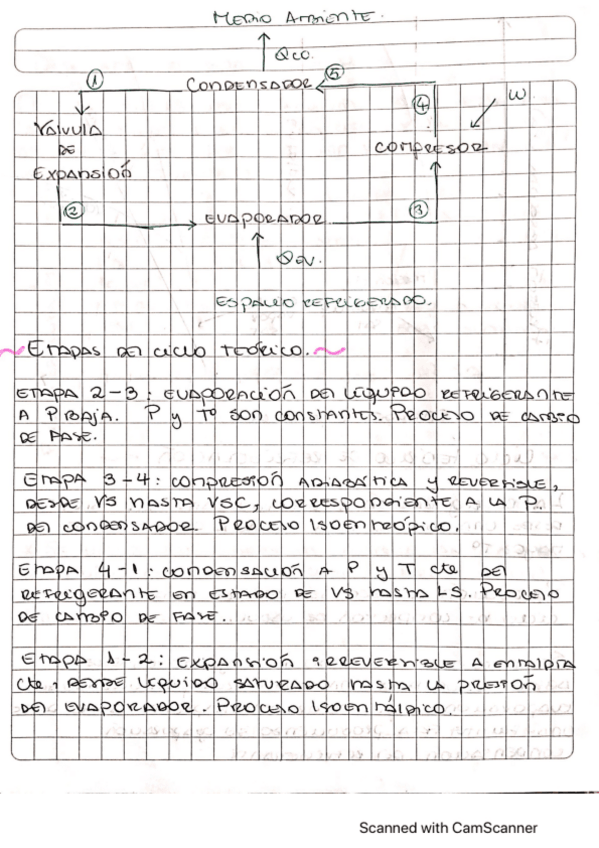 MEDIO AMBIENTE.
QCO.
① CONDENSADOR ⑤
④ W
VÁLVULA
DE
EXPANSIÓN
COMPRESOR
② EVAPORADOR ③
QEV.
ESPACIO REFRIGERADO.
~ETAPAS DEL CICLO TEÓRICO.~
ETAPA 2-3: EVAPORACIÓN DEL LÍQUIDO REFRIGERANTE
A P BAJA. P y Tº SON CONSTANTES. PROCESO DE CAMBIO
DE FASE.
ETAPA 3-4: COMPRESIÓN ADIABÁTICA Y REVERSIBLE,
DESDE VS HASTA VSC, CORRESPONDIENTE A LA P.
DEL CONDENSADOR. PROCESO ISOENTRÓPICO.
ETAPA 4-1: CONDENSACIÓN A P y T cte DEL
REFRIGERANTE EN ESTADO DE VS HASTA LS. PROCESO
DE CAMBIO DE FASE.
ETAPA 1-2: EXPANSIÓN IRREVERSIBLE A ENTALPIA
cte, DESDE LÍQUIDO SATURADO HASTA LA PRESIÓN
DEL EVAPORADOR. PROCESO ISOENTÁLPICO.
Scanned with CamScanner